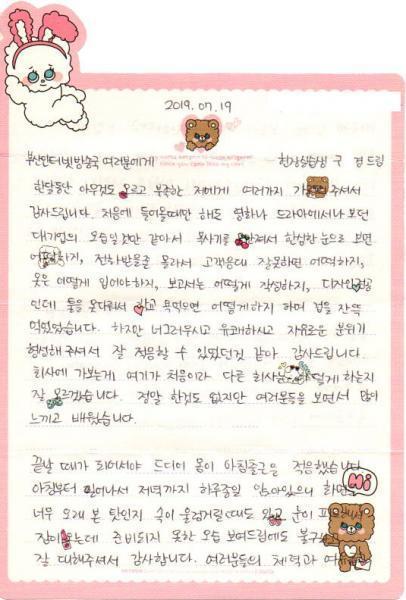 2019. 07. 19
부산인터넷방송국 여러분에게
현장실습생 구 경 드림
한달동안 아무것도 모르고 부족한 저에게 여러가지 주셔서
감사드립니다. 처음에 들어올때만 해도 영화나 드라마에서나 보던
대기업의 모습일것만 같아서 복사기를 한심한 눈으로 보면
어떡하지, 전화받을줄 몰라서 고객응대 잘못하면 어떡하지,
옷은 어떻게 입어야하지, 보고서는 어떻게 작성하지, 디자인전공
인데 툴을 못다뤄서 욕먹으면 어떻게하지 하며 겁을 잔뜩
먹었었습니다. 하지만 너그러우시고 유쾌하시고 자유로운 분위기
형성해주셔서 잘 적응할 수 있었던것 같아 감사드립니다.
회사에 가보는게 여기가 처음이라 다른 하는지
잘 모르겠습니다. 정말 한것도 없지만 여러분들을 보면서 많이
느끼고 배웠습니다.
끝날 때가 되어서야 드디어 몸이 아침출근을 적응했습니다
아침부터 일어나서 저녁까지 하루종일 앉아있으니
너무 오래 본 탓인지 속이 울렁거릴때도 있고 눈이
잠이 오는데 준비되지 못한 모습 보여드림에도
잘 대해주셔서 감사합니다. 여러분들의 체력과
Hi